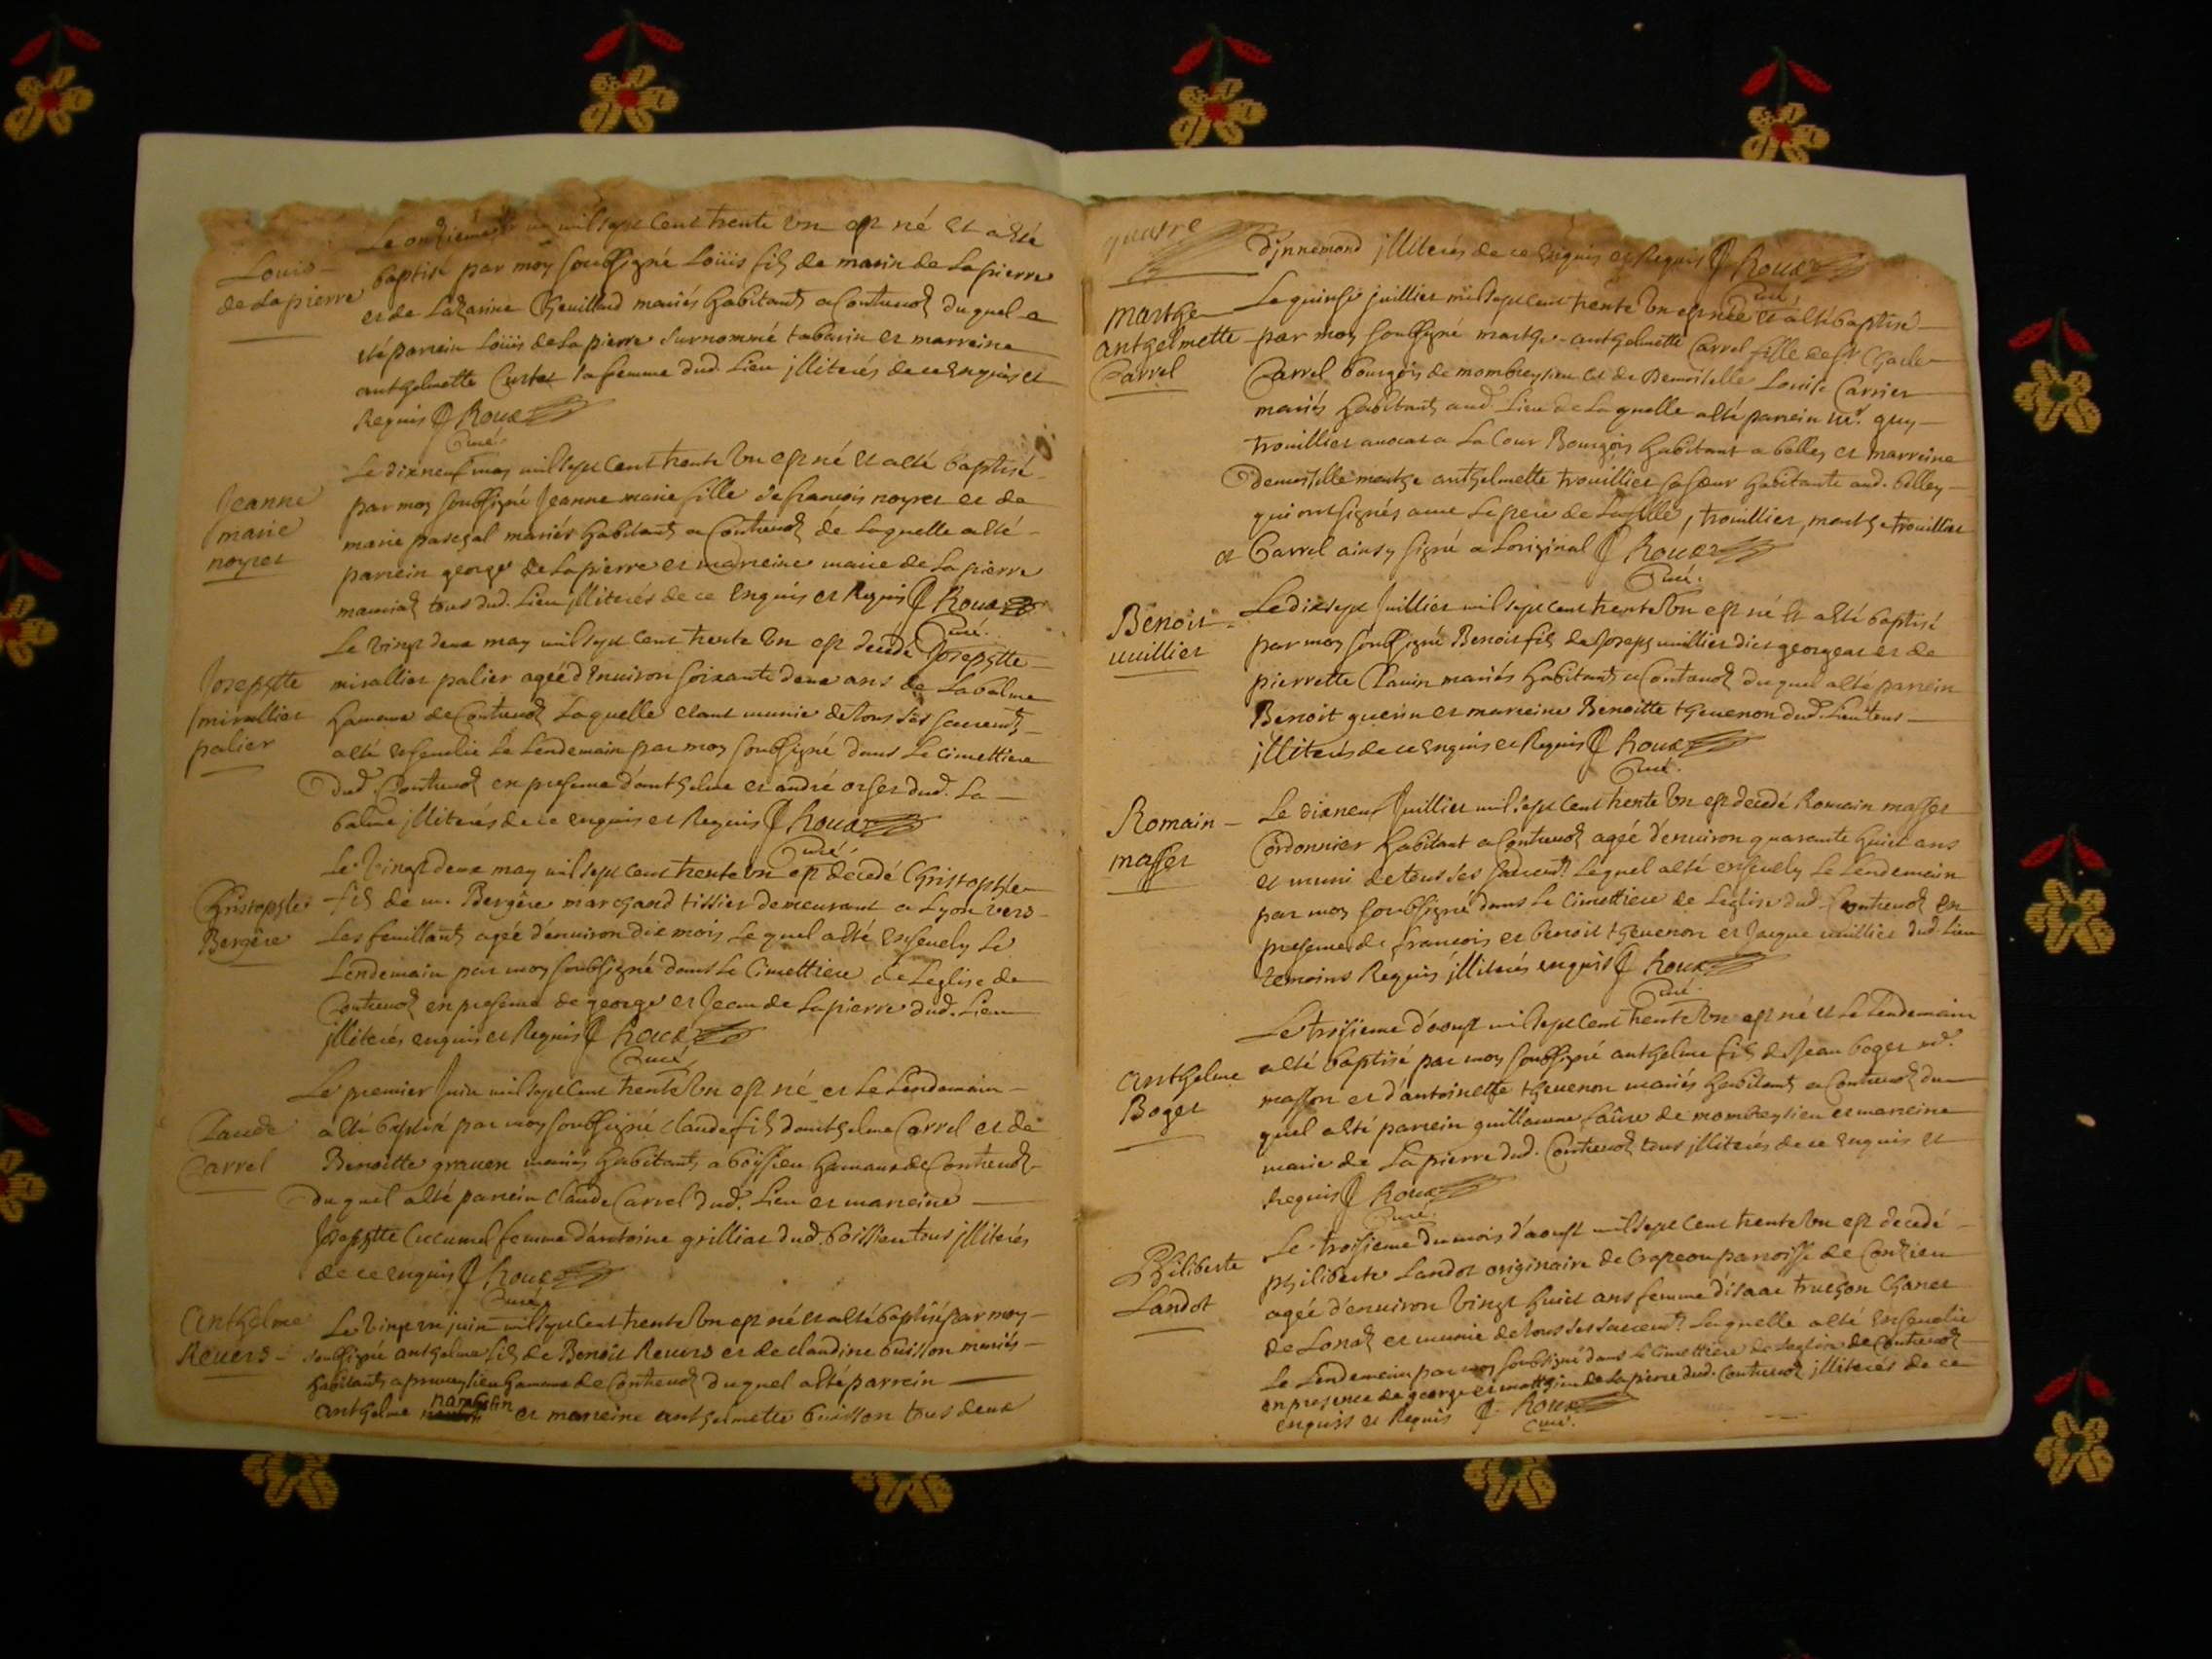 Le onziéme mil sept cent trente Un est né et a été
Louis
baptisé par moy soubsigné Loüis fils de marin de La pierre
de La pierre
et de Lazarine Cheuillard mariés habitants a Contreuoz du quel a
été parrein Loüis de La pierre surnommé tabarin et marreine
anthelmette Curtet sa femme dud. Lieu jlliterés de ce enquis et
Requis Roux
Curé.
Le dixneuf may mil sept cent trente Un est né et a été baptisé
Jeanne
par moy soubsigné Jeanne marie fille de francois noyret et de
marie
marie paschal mariés habitants a Contreuoz de Laquelle a été
noyret
parrein george de La pierre et marreine marie de La pierre
mamiaz tous dud. Lieu jlliterés de ce Enquis et Requis Roux
Curé.
Le Vingt deux may mil sept cent trente Un est décédé Josephtte
Josephtte
mirallier palier agée d'Enuiron soixante deux ans de La balme
mirallier
hameau de Contreuoz Laquelle etant munie de tous ses sacrents
palier
a été enseuelie Le Lendemain par moy soubsigné dans Le Cimettiere
Dud. Contreuoz en presence d'anthelme et andré orset dud. La
balme jlliterés de ce enquis et Requis Roux
Curé.
Le Vingt deux may mil sept cent trente Un est decedé Christophle
Christophle
fils de m. Bergére marchand tissier demeurant a Lyon vers
Bergére
Les feuillants agée d'enuiron dix mois Le quel a été Enseuely Le
Lendemain par moy soubsigné dans Le Cimettiere de Leglise de
Contreuoz en presence de george et Jean de La pierre dud. Lieu
jlliterés enquis et Requis Roux
Curé
Le premier Juin mil sept cent trente Un est né et Le Lendemain
Claude
a été baptisé par moy soubsigné claude fils d'anthelme Carrel et de
Carrel
Benoitte grauen mariés habitants a boyssieu hameau de Contreuoz
Du quel a été parrein Claude Carrel dud. Lieu et marreine
Josephtte Cucumel femme d'antoine grilliat dud. boissieu tous jlliterés
de ce enquis Roux
Curé.
Anthelme
Le Vingt un juin mil sept cent trente Un est né et a été baptisé par moy
Reuers
soubsigné anthelme fils de Benoit Reuers et de claudine buisson mariés
habitants a preueylieu hameau de Contreuoz du quel a été parrein
anthelme nambotin et marreine anthelmette buisson tous deux
quatre
D'jnnemond jlliterés de ce Enquis et Requis Roux
Curé
Marthe
Le quinse juillier mil sept cent trente Un est née et a été baptisé
anthelmette
par moy soubsigné marthe anthelmette Carrel fille de sr. Charle
Carrel
Carrel bourgois de mombreysieu et de Demoiselle Louise Carrier
mariés habitants aud. Lieu de Laquelle a été parrein mr. guy
trouillier auocat a La Cour Bourgois habitant a belley et marreine
Demoiselle marthe anthelmette trouillier sa sœur habitante aud. belley
qui ont signés auec Le pere de La fille, trouillier, marthe trouillier
et Carrel ainsy signé a Loriginal Roux
Curé.
Benoit
Le dix sept Juillier mil sept cent trente Un est né et a été baptisé
uuillier
par moy soubsigné Benoit fils de Joseph uuillier dict georgeat et de
pierrette Clauin mariés habitants a Contreuoz du quel a été parrein
Benoit guerin et marreine Benoitte theuenon dud. Lieu tous
jlliterés de ce enquis et Requis Roux
Curé.
Romain
Le dixneuf Juillier mil sept cent trente Un est decedé Romain masset
masset
Cordonnier habitant a Contreuoz agée d'enuiron quarante huict ans
et muni de tous ses sacrents Lequel a été enseuely Le Lendemain
par moy soubsigné dans Le Cimettiere de Leglise dud. Contreuoz en
presence de francois et benoit theuenon et Jacque uuillier dud. Lieu
temoins Requis jlliterés enquis Roux
Curé.
Le troisieme d'aoust mil sept cent trente Un est né et Le Lendemain
Anthelme
a été baptisé par moy soubsigné anthelme fils de Jean boget md.
Boget
masson et d'antoinette theuenon mariés habitants a Contreuoz du
quel a été parrein guillaume faûre de mombreysieu et marreine
marie de La pierre dud. Contreuoz tous jlliterés de ce enquis et
Requis Roux
Curé.
Philiberte
Le troisieme du mois d'aoust mil sept cent trente Un est decedé
Landot
philiberte Landot originaire de Crapeou parroisse de Conzieu
agée d'enuiron Vingt huict ans femme d'isaac truchon Chanet
de Lonaz et munie de tous ses sacrents Laquelle a été enseuelie
Le Lendemain par moy soubsigné dans Le Cimettiere de Leglise de Contreuoz
en presence de george et matthieu de La pierre dud. Contreuoz jlliterés de ce
enquis et Requis Roux
Curé.